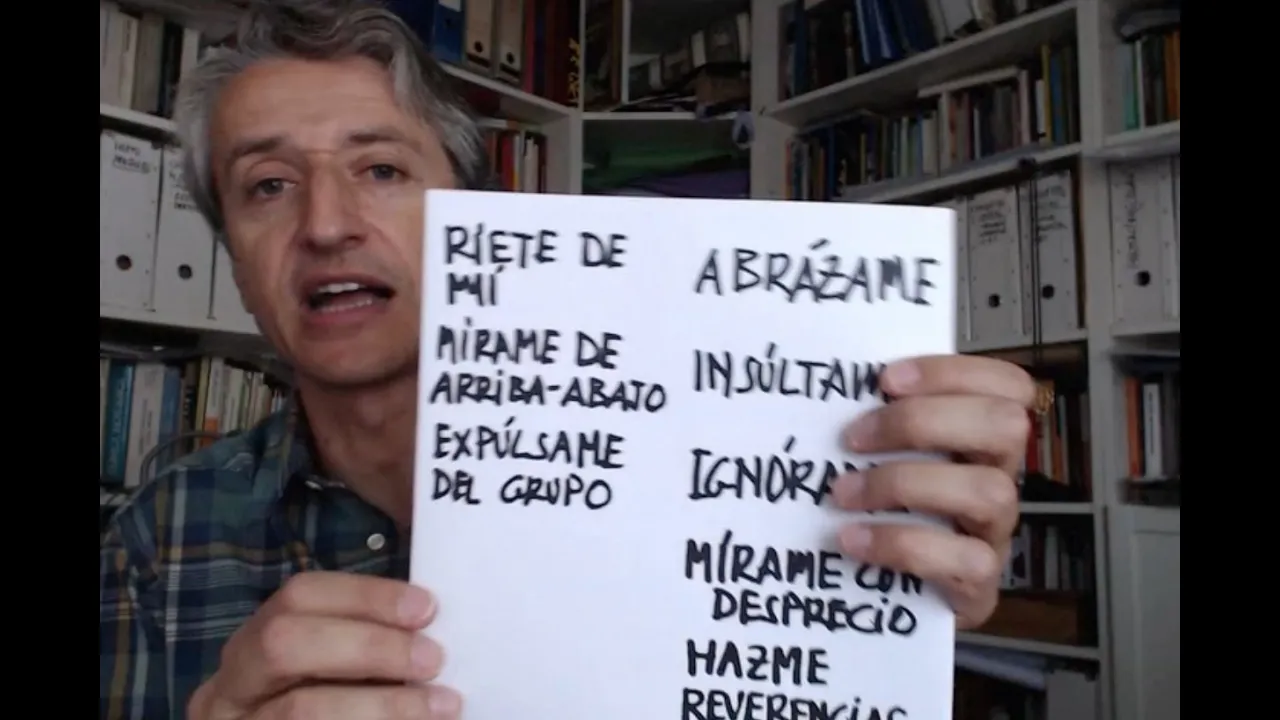 RÍETE DE
MÍ
MÍRAME DE
ARRIBA-ABAJO
EXPÚLSAME
DEL GRUPO
ABRÁZAME
MÍRAME CON
DESPRECIO
HAZME
REVERENCIAS